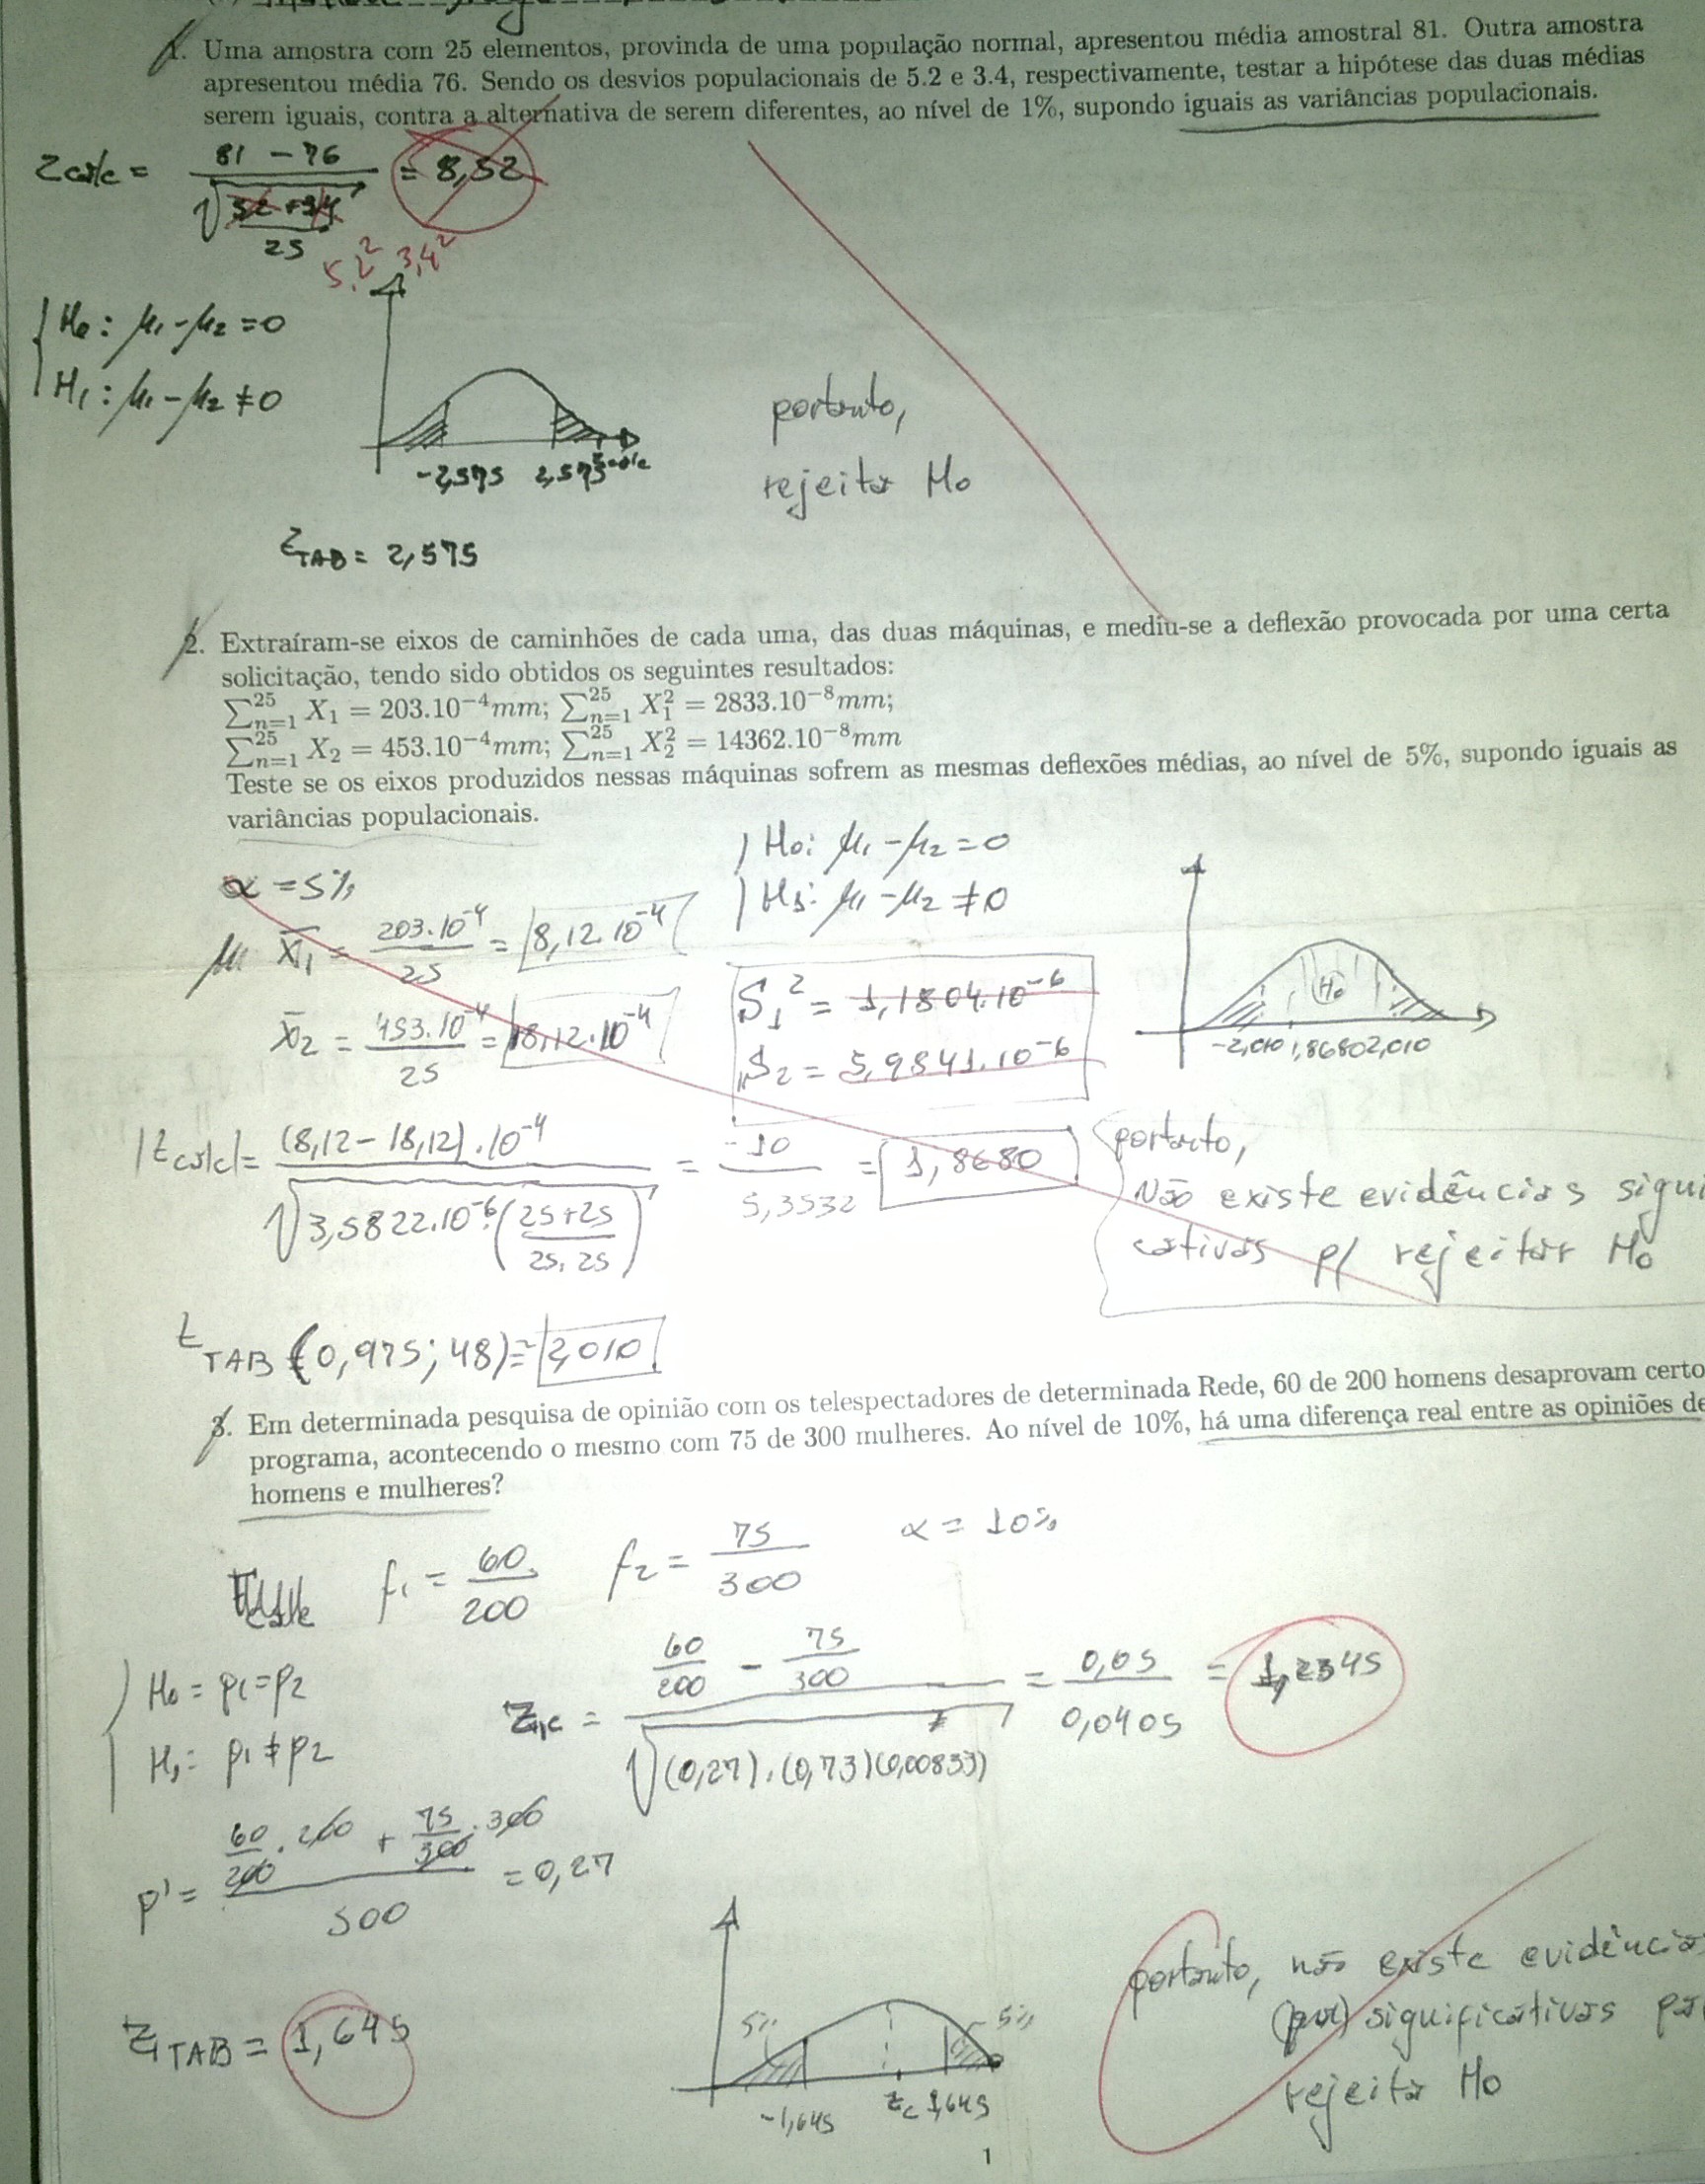 1. Uma amostra com 25 elementos, provinda de uma população normal, apresentou média amostral 81. Outra amostra
apresentou média 76. Sendo os desvios populacionais de 5.2 e 3.4, respectivamente, testar a hipótese das duas médias
serem iguais, contra a alternativa de serem diferentes, ao nível de 1%, supondo iguais as variâncias populacionais.
Zcalc = (81 - 76) / √((52 + 34) / 25) = 8,52
5.2² 3,4²
H0: μ1 - μ2 = 0
H1: μ1 - μ2 ≠ 0
-2,575 2,575 Zcalc
portanto,
rejeita H0
ZTAB = 2,575
2. Extraíram-se eixos de caminhões de cada uma, das duas máquinas, e mediu-se a deflexão provocada por uma certa
solicitação, tendo sido obtidos os seguintes resultados:
∑²⁵ₙ₌₁ X₁ = 203.10⁻⁴mm; ∑²⁵ₙ₌₁ X₁² = 2833.10⁻⁸mm;
∑²⁵ₙ₌₁ X₂ = 453.10⁻⁴mm; ∑²⁵ₙ₌₁ X₂² = 14362.10⁻⁸mm
Teste se os eixos produzidos nessas máquinas sofrem as mesmas deflexões médias, ao nível de 5%, supondo iguais as
variâncias populacionais.
α = 5%
H0: μ1 - μ2 = 0
H1: μ1 - μ2 ≠ 0
μ1 X̄1 = 203.10⁻⁴ / 25 = 8,12.10⁻⁴
X̄2 = 453.10⁻⁴ / 25 = 18,12.10⁻⁴
S1² = 1,1804.10⁻⁶
S2 = 5,9841.10⁻⁶
H0
-2,010 1,8680 2,010
|tcalc| = (8,12 - 18,12).10⁻⁴ / √(3,5822.10⁻⁶.((25+25)/(25.25))) = -10 / 5,3532 = 1,8680
portanto,
Não existe evidências signi
cativas p/ rejeitar H0
tTAB (0,975; 48) = 2,010
3. Em determinada pesquisa de opinião com os telespectadores de determinada Rede, 60 de 200 homens desaprovam certo
programa, acontecendo o mesmo com 75 de 300 mulheres. Ao nível de 10%, há uma diferença real entre as opiniões de
homens e mulheres?
f1 = 60/200 f2 = 75/300 α = 10%
H0 = p1 = p2
H1: p1 ≠ p2
Zc = (60/200 - 75/300) / √((0,27).(0,73)(0,00833)) = 0,05 / 0,0405 = 1,2345
p' = (60/200 . 200 + 75/300 . 300) / 500 = 0,27
ZTAB = 1,645
5% 5%
-1,645 Zc 1,645
portanto, não existe evidência
significativas pa
rejeita H0
1